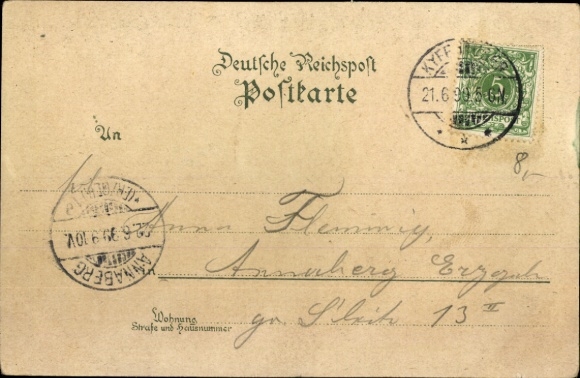 Deutsche Reichspost
Postkarte
KYFF
21.6.99.5-6N.
5
8,-
An
22.6.99.9.10V.
ANNABERG
Anna Flemmig,
Annaberg Erzgeb
Wohnung
Straße und Hausnummer
gr. 13 II